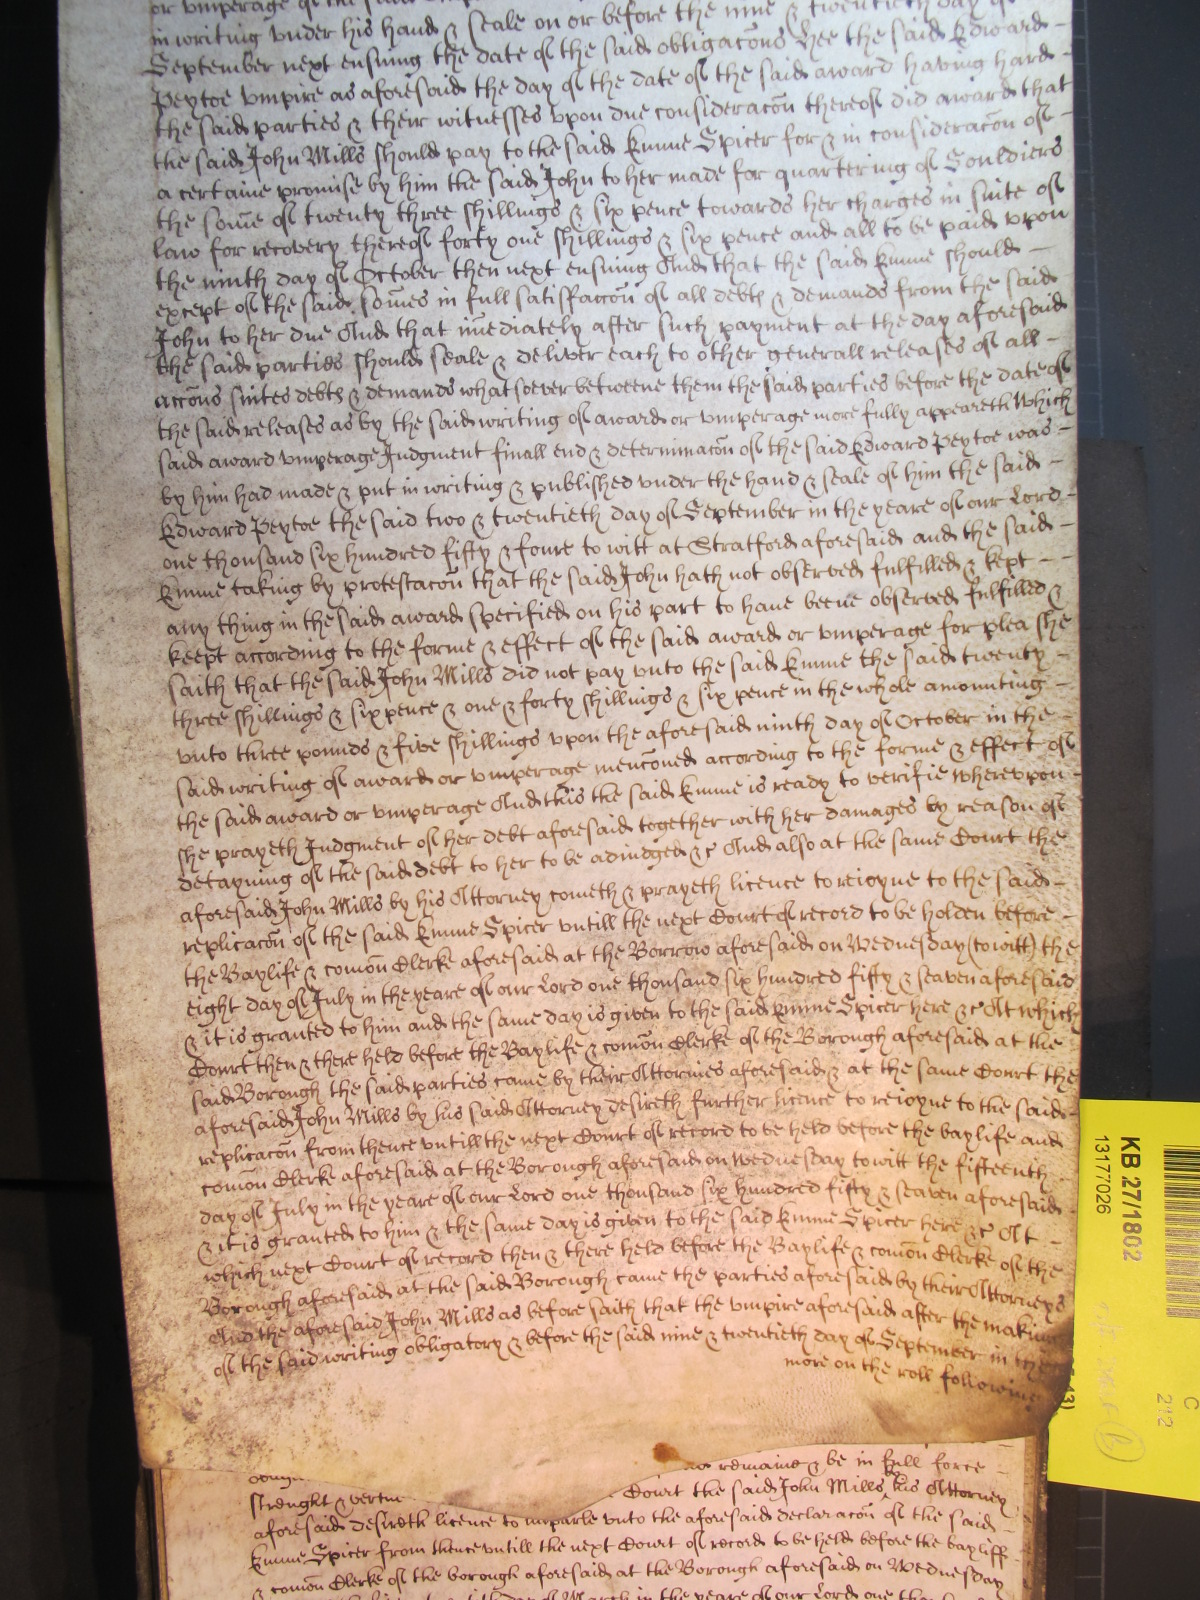 or vmperage of the said
in writing vnder his hand & seale on or before the nine & twentieth day of
September next ensuing the date of the said obligacōns Hee the said Edward
Peytoe vmpire as aforesaid the day of the date of the said award having hard
the said parties & their witnesses vpon due consideracōn thereof did award that
the said John Mills should pay to the said Emme Spicer for & in consideracōn of
a certaine promise by him the said John to her made for quartering of Souldiers
the som̄e of twenty three shillings & six pence towards her charges in suite of
law for recovery thereof forty one shillings & six pence and all to be paid vpon
the ninth day of October then next ensuing And that the said Emme should
except of the said som̄es in full satisfaccōn of all debts & demands from the said
John to her due And that im̄ediately after such payment at the day aforesaid
the said parties should seale & deliver each to other generall releases of all
accōns suites debts & demands whatsoever betweene them the said parties before the date of
the said releases as by the said writing of award or vmperage more fully appeareth Which
said award vmperage Judgment finall end & determinacōn of the said Edward Peytoe was
by him had made & put in writing & published vnder the hand & seale of him the said
Edward Peytoe the said two & twentieth day of September in the yeare of our Lord
one thousand six hundred fifty & foure to witt at Stratford aforesaid and the said
Emme taking by protestacōn that the said John hath not observed fulfilled & kept
any thing in the said award specified on his part to haue beene observed fulfilled &
keept according to the forme & effect of the said award or vmperage for plea she
saith that the said John Mills did not pay vnto the said Emme the said twenty
three shillings & sixpence & one & forty shillings & six pence in the whole amounting
vnto three pounds & five shillings vpon the aforesaid ninth day of October in the
said writing of award or vmperage mencōned according to the forme & effect of
the said award or vmperage And this the said Emme is ready to verifie Wherevpon
she prayeth Judgment of her debt aforesaid together with her damages by reason of
detayning of the said debt to her to be adiudged &c And also at the same Court the
aforesaid John Mills by his Attorney cometh & prayeth licence to reioyne to the said
replicacōn of the said Emme Spicer vntill the next Court of record to be holden before
the Baylife & comōn Clerke aforesaid at the Borrow aforesaid on Wednesday (to witt) the
eight day of July in the yeare of our Lord one thousand six hundred fifty & seaven aforesaid
& it is granted to him and the same day is given to the said Emme Spicer here &c At which
Court then & there held before the Baylife & comōn Clerke of the Borough aforesaid at the
said Borough the said parties came by their Attornies aforesaid & at the same Court the
aforesaid John Mills by his said Attorney desireth further licence to reioyne to the said
replicacōn from thence vntill the next Court of record to be held before the baylife and
comōn Clerke aforesaid at the Borough aforesaid on Wednesday to witt the fifteenth
day of July in the yeare of our Lord one thousand six hundred fifty & seaven aforesaid
& it is granted to him & the same day is given to the said Emme Spicer here &c At
which next Court of record then & there held before the Baylife & comōn Clerke of the
Borough aforesaid at the said Borough came the parties aforesaid by their Attorneys
And the aforesaid John Mills as before saith that the vmpire aforesaid after the making
of the said writing obligatory & before the said nine & twentieth day of September in the
more on the roll following
remaine & be in full force
strenght & vertue Court the said John Mills by his Attorney
aforesaid desireth licence to imparle vnto the aforesaid declaracōn of the said
Emme Spicer from thence vntill the next Court of record to be held before the bayliff
& comōn Clerke of the borough aforesaid at the Borough aforesaid on Wednesday
day of March in the yeare of our Lord one
KB 27/1802
13177026
C
242